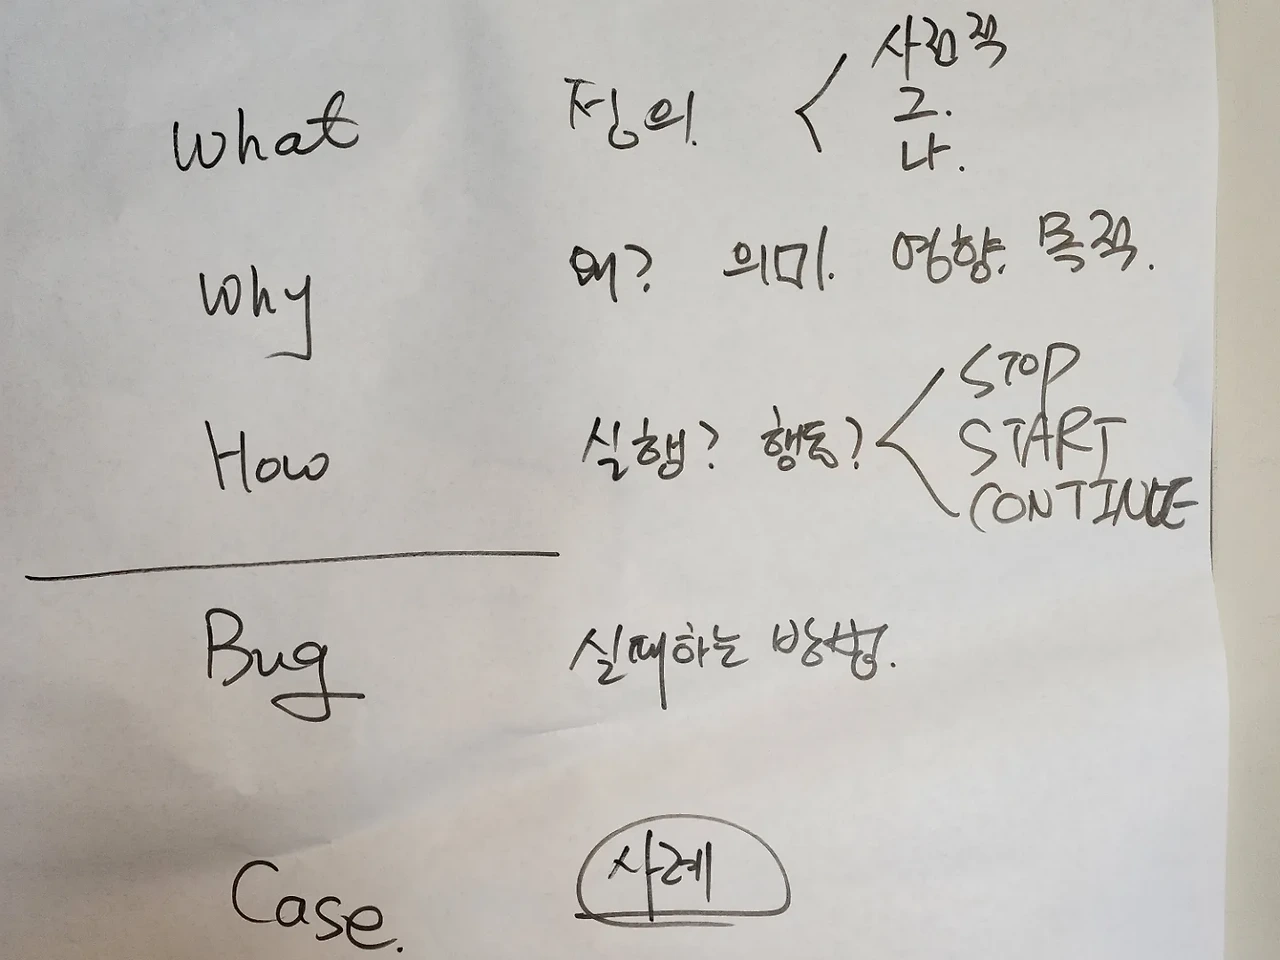 What 정의. 사전적
그.
나.
Why 왜? 의미. 영향. 목적.
How 실행? 행동? STOP
START
CONTINUE
Bug 실패하는 방법.
Case. 사례